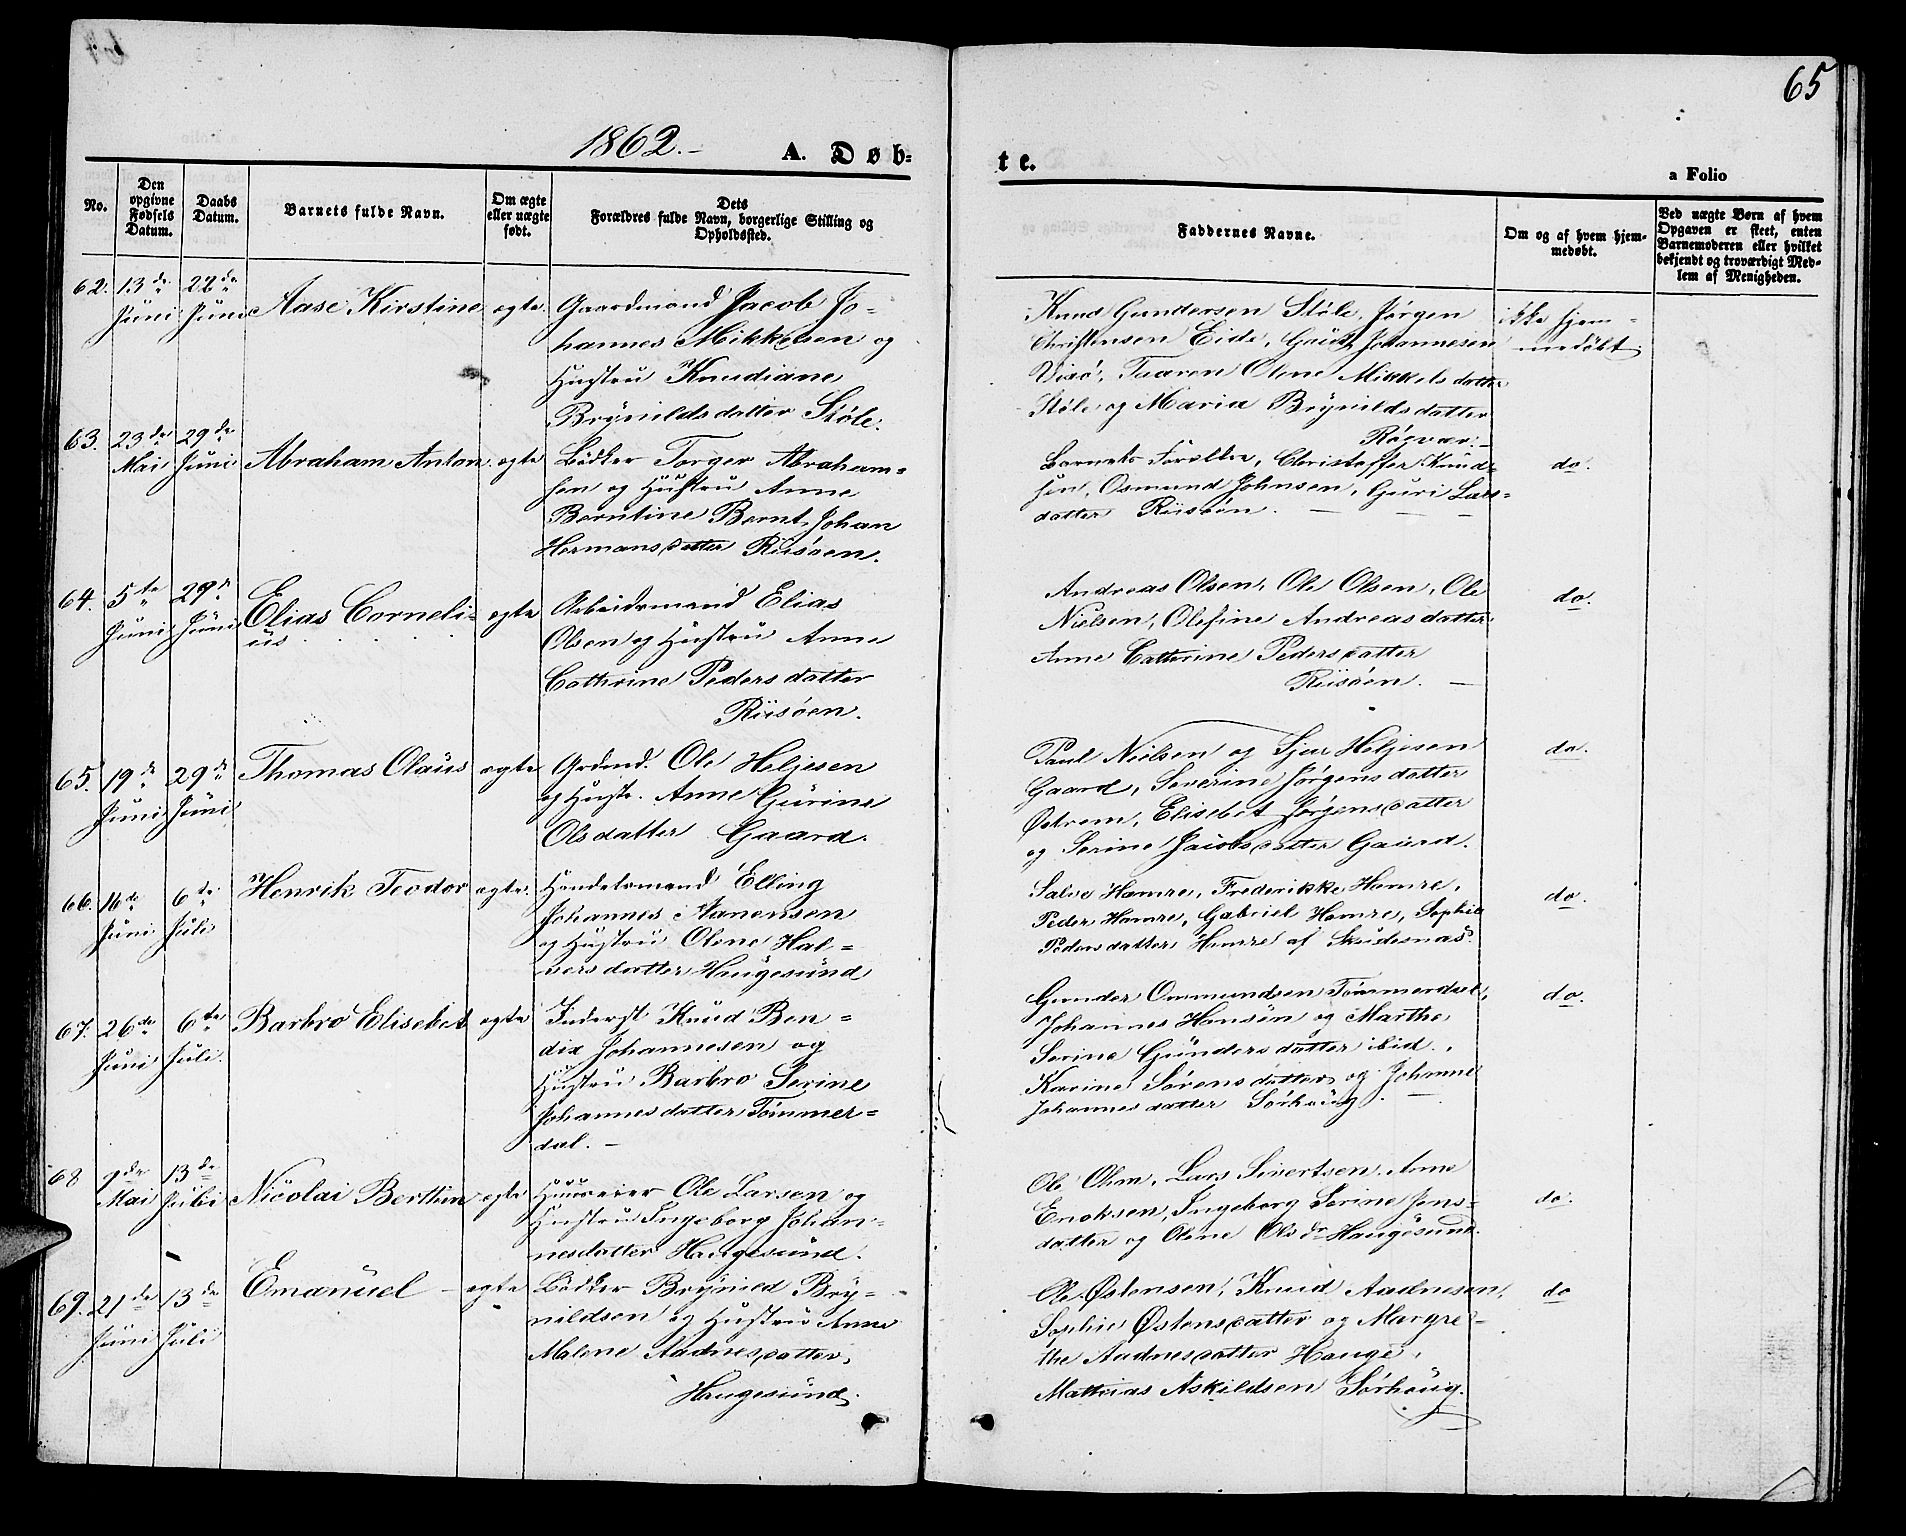 65
1862.-
A. Døb-
te.
a Folio
No.
Den
opgivne
Fødsels
Datum.
Daabs
Datum.
Barnets fulde Navn.
Om ægte
eller uægte
født.
Dets
Forældres fulde Navn, borgerlige Stilling og
Opholdssted.
Faddernes Navne.
Om og af hvem hjem-
medøbt.
Ved uægte Børn af hvem
Opgaven er skeet, enten
Barnemoderen eller hvilket
bekjendt og troværdigt Med-
lem af Menigheden.
62. 13de 22de
Juni Juni Aase Kirstine ægte Gaardmand Jacob Jo-
hannes Mikkelsen og
Hustru Knudiane
Brynildsdatter Støle.
Knud Gundersen Støle, Jørgen
Christensen Eide, Johannesen
Olene Mikkelsdatter
Støle og Maria Brynildsdatter
Røgvær.-
ikke hjem-
medøbt.
63. 23de 29de
Mai Juni Abraham Anton ægte Bødker Torger Abraham-
sen og Hustru Anne
Berntine Bernt Johan
Hermansdatter Riisøen.
Barnets Forældre, Christoffer Knud-
sen, Osmund Johnsen, Guri Lars-
datter Riisøen.
do.
64. 5te 29de
Juni Juni Elias Corneli-
us ægte Arbeidsmand Elias
Olsen og Hustru Anne
Cathrine Pedersdatter
Riisøen.
Andreas Olsen, Ole Olsen, Ole
Nielsen, Olefine Andreasdatter
Anne Cathrine Pedersdatter
Riisøen. -
do.
65. 19de 29de
Juni Juni Thomas Olaus ægte Grdmd. Ole Heljesen
og Hustr. Anne Gurine
Olsdatter Gaard.
Paul Nielsen og Sjur Heljesen
Gaard, Severine Jørgensdatter
Østrem, Elisebet Jørgensdatter
og Serine Jacobsdatter Gaard.
do.
66. 16de 6te
Juni Juli Henrik Teodor ægte. Handelsmand Elling
Johannes Aanensen
og Hustru Olene Hal-
versdatter Haugesund
Salve Hamre, Frederikke Hamre,
Peder Hamre, Gabriel Hamre, Sophie
Pedersdatter Hamre af Skudesnæs.
do.
67. 26de 6te
Juni Juli. Barbro Elisebet ægte Inderst Knud Ben-
dix Johannesen og
Hustru Barbro Serine
Johannesdatter Tømmer-
dal. -
Gunder Ommundsen Tømmerdal,
Johannes Hansen og Marthe
Serine Gundersdatter ibid.,
Karine Sørensdatter og Johanne
Johannesdatter Sørhaug. -
do.
68 9de 13de
Mai Juli Nicolai Berthin ægte Huuseier Ole Larsen og
Hustru Ingeborg Johan-
nesdatter Haugesund.
Ole Ohm, Lars Sivertsen, Arne
Enoksen, Ingeborg Serine Jens-
datter og Olene Olsdr Haugesund.
do.
69. 21de 13de
Juni Juli Emanuel - ægte Bødker Brynild Bry-
nildsen og Hustru Anne
Malene Aadnesdatter,
Haugesund.
Ole Østensen, Knud Aadnesen,
Sophie Østensdatter og Margre-
the Aadnesdatter Hauge,
Mathias Askildsen Sørhaug.
do